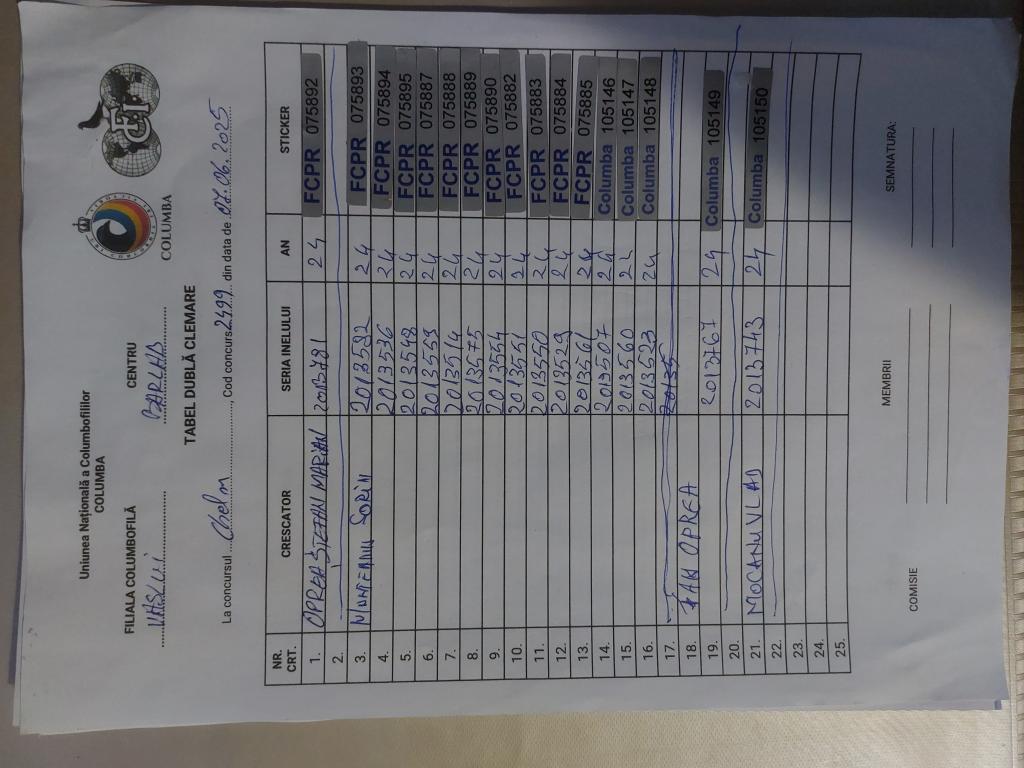 Uniunea Națională a Columbofililor
COLUMBA
COLUMBA
FCI
FILIALA COLUMBOFILĂ CENTRU
VASLUI BARLAD
TABEL DUBLĂ CLEMARE
La concursul Chelm, Cod concurs 2499 din data de 07.06.2025
NR. CRT. CRESCATOR SERIA INELULUI AN STICKER
1. OPREA ȘTEFAN MARIAN 2013781 24 FCPR 075892
2.
3. MUNTEANU SORIN 2013532 24 FCPR 075893
4. 2013536 24 FCPR 075894
5. 2013548 24 FCPR 075895
6. 2013559 24 FCPR 075887
7. 2013514 24 FCPR 075888
8. 2013575 24 FCPR 075889
9. 2013554 24 FCPR 075890
10. 2013551 24 FCPR 075882
11. 2013550 24 FCPR 075883
12. 2013529 24 FCPR 075884
13. 2013561 24 FCPR 075885
14. 2013507 24 Columba 105146
15. 2013560 24 Columba 105147
16. 2013523 24 Columba 105148
17. 20135
18. OPREA
19. 2013767 24 Columba 105149
20.
21. MOCANU VLAD 2013743 24 Columba 105150
22.
23.
24.
25.
COMISIE MEMBRII SEMNATURA: